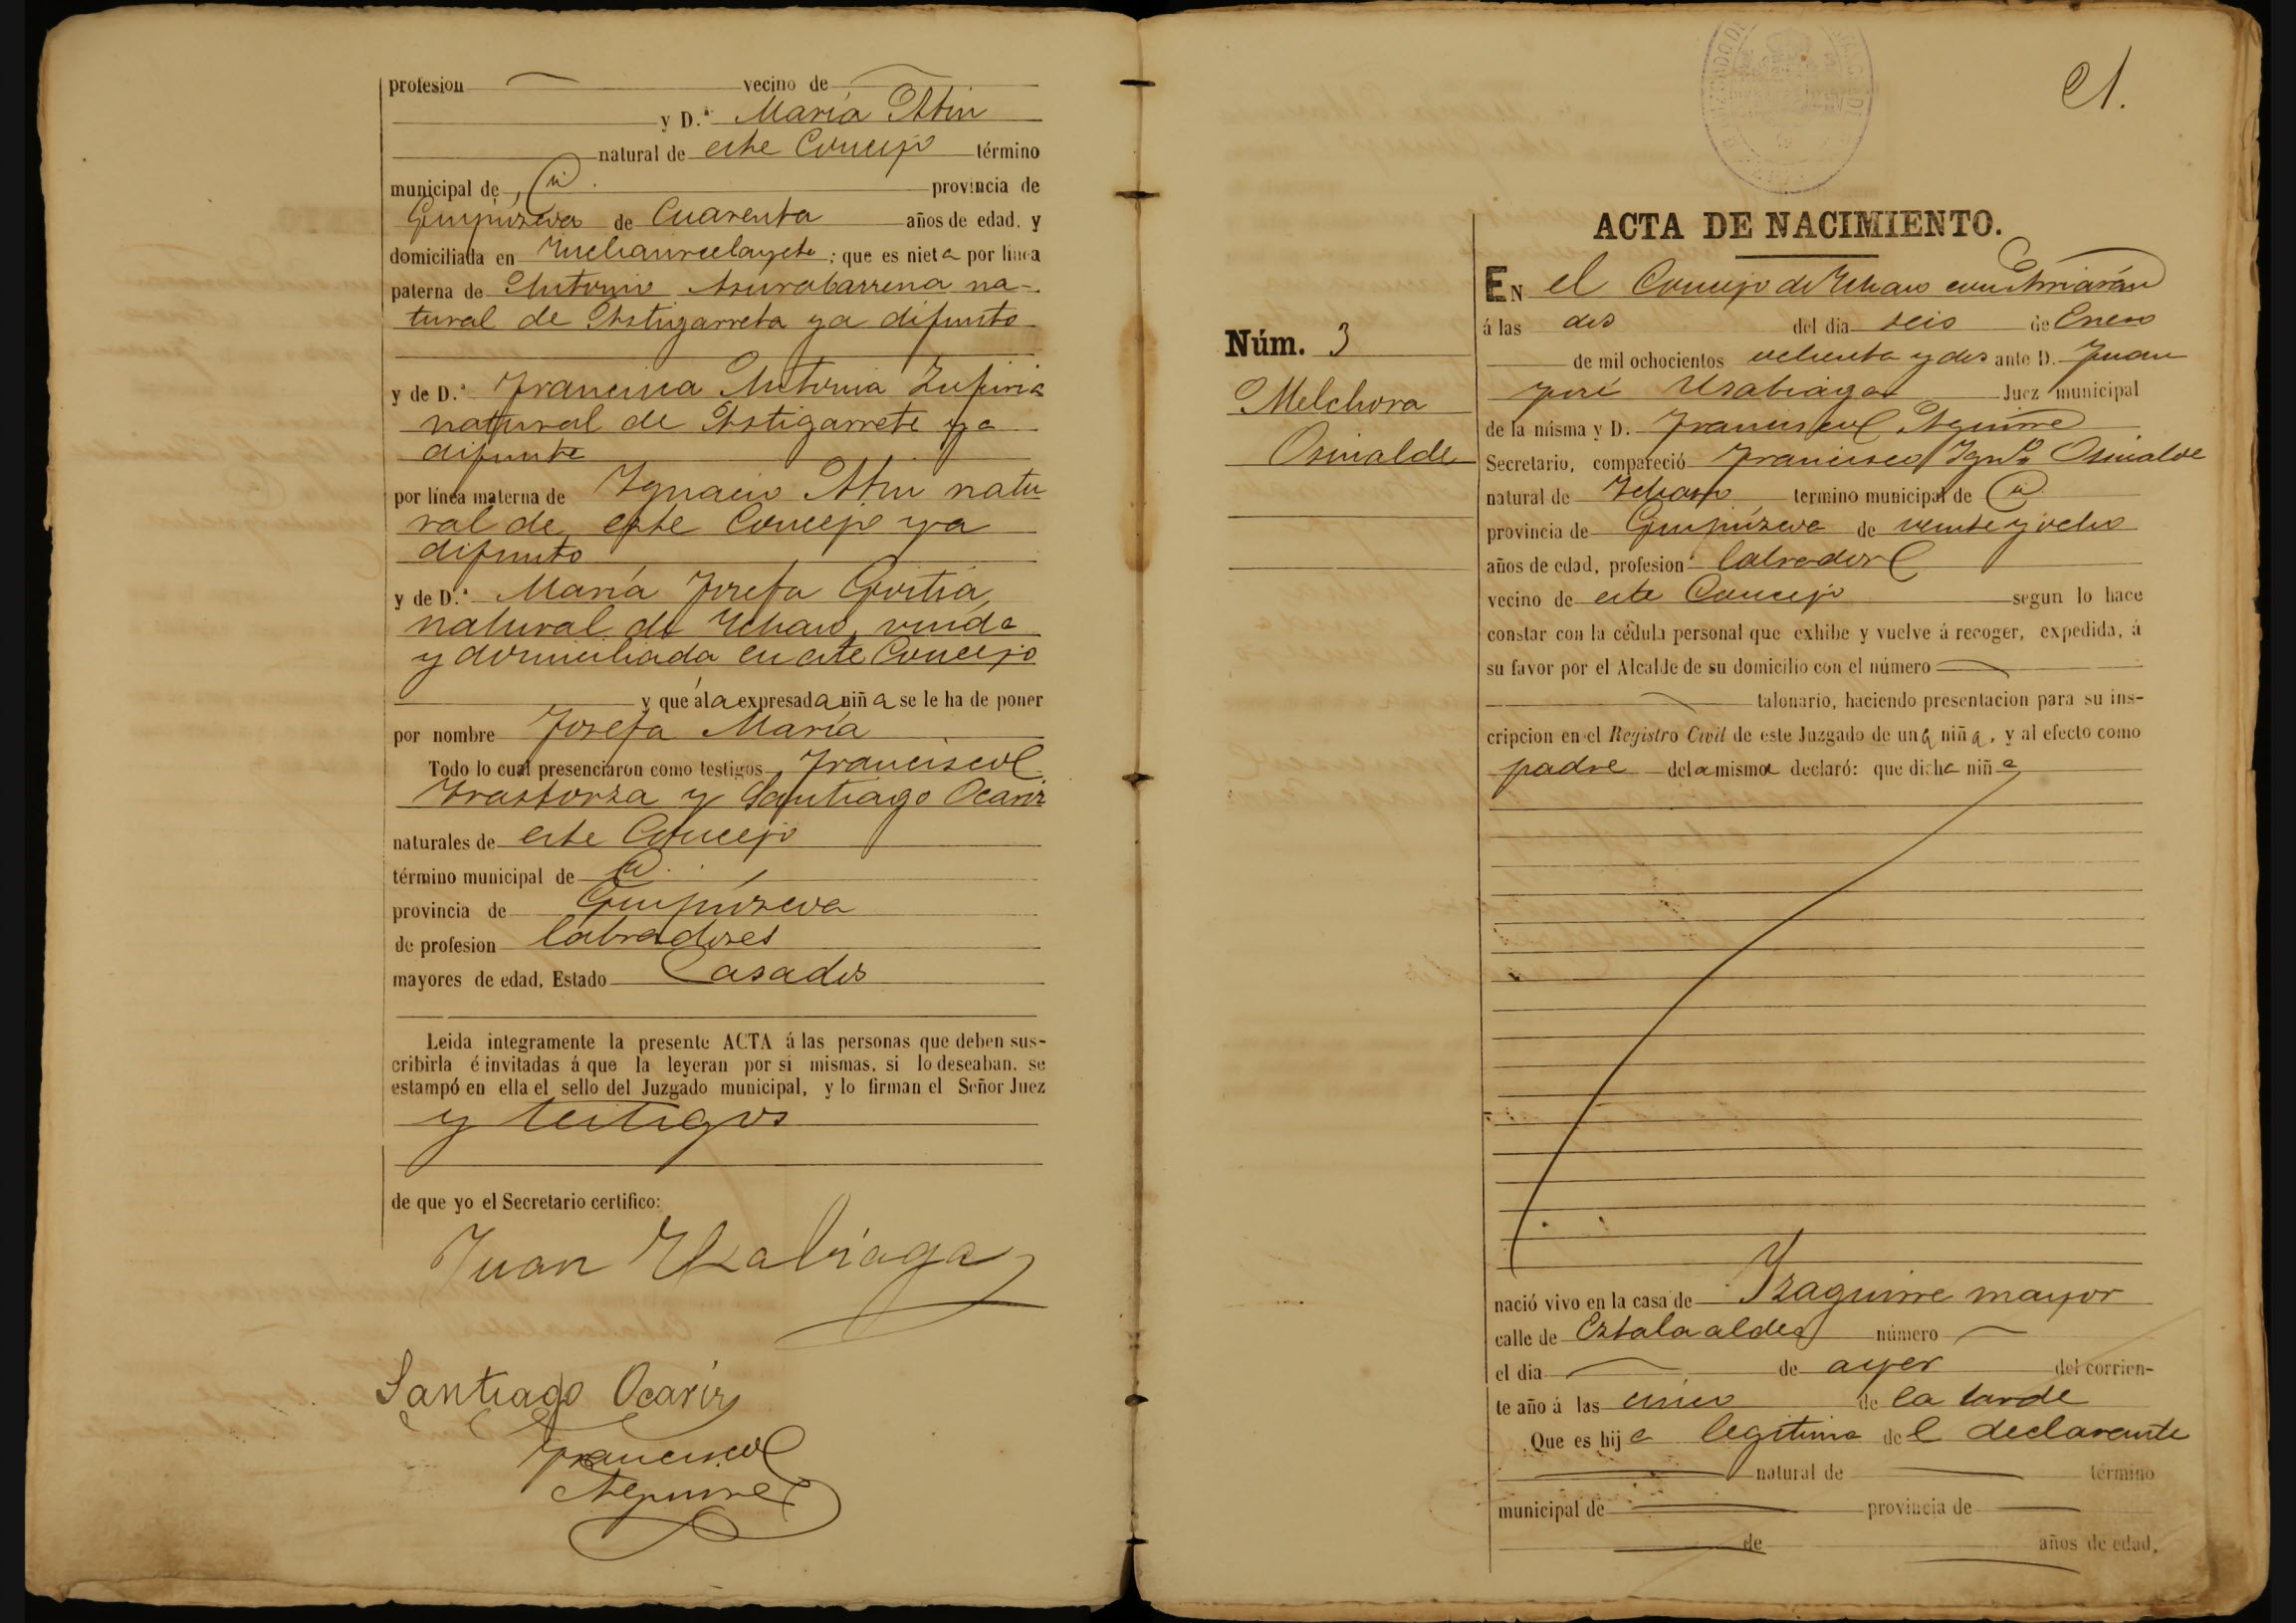 profesion vecino de
y D.ª María Atin
natural de este Concejo término
municipal de id. provincia de
Guipúzcoa de Cuarenta años de edad, y
domiciliada en ; que es nieta por línea
paterna de Antonio Azurabarrena na-
tural de Astigarreta ya difunto
y de D.ª Francisca Antonia Zufiria
natural de Astigarreta ya
difunta
por línea materna de Ignacio Atin natu
ral de este Concejo ya
difunto
y de D.ª María Josefa Gortia,
natural de Ichaso, viuda
y domiciliada en este Concejo
y que á la expresada niña se le ha de poner
por nombre Josefa María
Todo lo cual presenciaron como testigos Francisco
Irastorza y Santiago Ocariz
naturales de este Concejo
término municipal de id.
provincia de Guipúzcoa
de profesion labradores
mayores de edad, Estado Casados
Leida integramente la presente ACTA á las personas que deben sus-
cribirla é invitadas á que la leyeran por si mismas, si lo deseaban, se
estampó en ella el sello del Juzgado municipal, y lo firman el Señor Juez
y testigos
de que yo el Secretario certifico:
Juan Usabiaga
Santiago Ocariz
Francisco
Aguirre
21.
ACTA DE NACIMIENTO.
EN el Concejo de Ichaso con Arriarán
á las dos del dia seis de Enero
de mil ochocientos ochenta y dos ante D. Juan
José Usabiaga Juez municipal
de la misma y D. Francisco Aguirre
Secretario, compareció Francisco Ign.º Osinalde
natural de Ichaso termino municipal de id.
provincia de Guipúzcoa de veinte y ocho
años de edad, profesion labrador
vecino de este Concejo segun lo hace
constar con la cédula personal que exhibe y vuelve á recoger, expedida, á
su favor por el Alcalde de su domicilio con el número
talonario, haciendo presentacion para su ins-
cripcion en el Registro Civil de este Juzgado de una niña, y al efecto como
padre de la misma declaró: que dicha niña
Núm. 3
Melchora
Osinalde
nació vivo en la casa de Yzaguirre mayor
calle de Estala aldea número
el dia de ayer del corrien-
te año á las cinco de la tarde
Que es hija legitima del declarante
natural de término
municipal de provincia de
de años de edad,